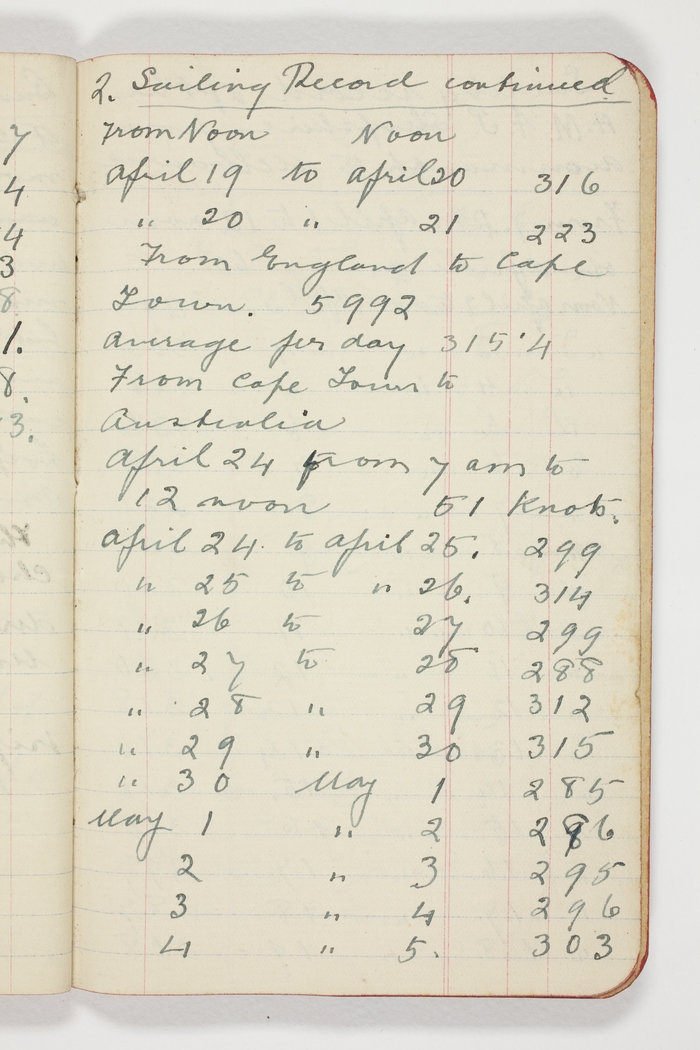 2. Sailing Record continued
From Noon Noon
April 19 to April 20 316
" 20 " 21 223
From England to Cape
Town. 5992
Average per day 315.4
From Cape Town to
Australia
April 24 from 7 am to
12 noon 51 Knots.
April 24. to April 25. 299
" 25 to " 26. 314
" 26 to 27 299
" 27 to 28 288
" 28 " 29 312
" 29 " 30 315
" 30 May 1 285
May 1 " 2 296
2 " 3 295
3 " 4 296
4 " 5. 303
7
4
4
3
8.
1.
8.
3.